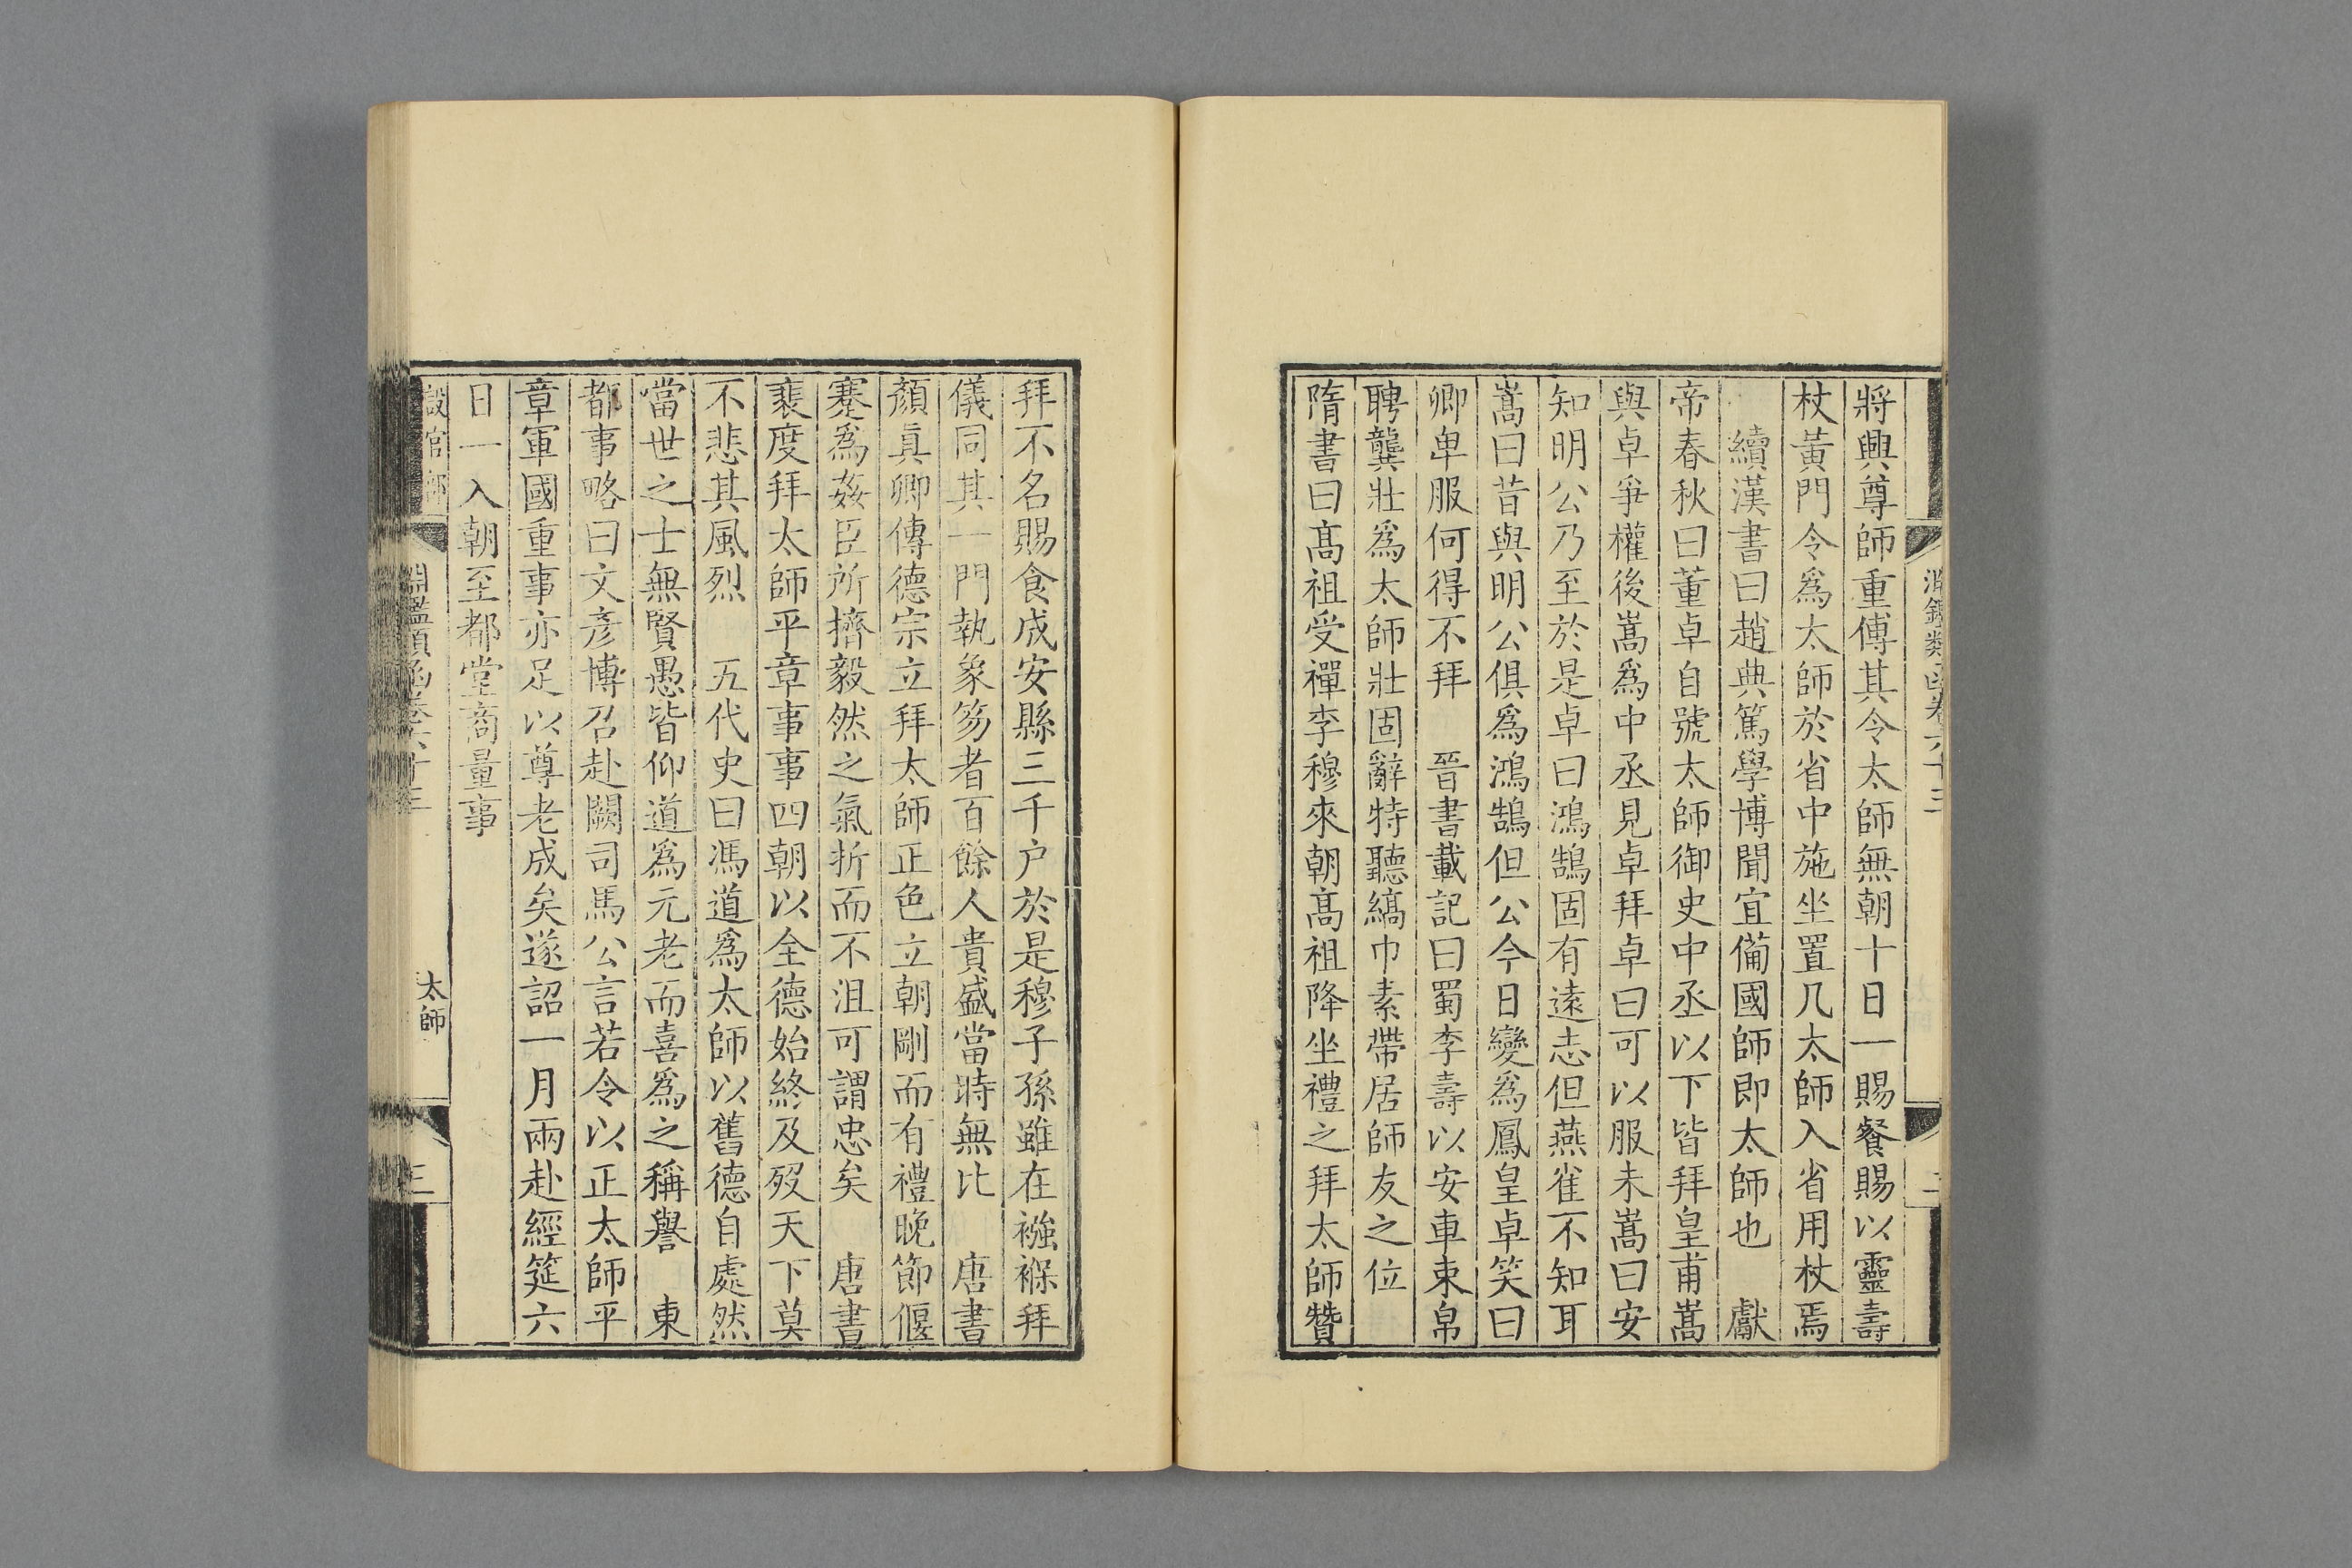 將興尊師重傅其令太師無朝十日一賜餐賜以靈壽
杖黃門令爲太師於省中施坐置几太師入省用杖焉
續漢書曰趙典篤學博聞宜備國師即太師也　獻
帝春秋曰董卓自號太師御史中丞以下皆拜皇甫嵩
與卓爭權後嵩爲中丞見卓拜卓曰可以服未嵩曰安
知明公乃至於是卓曰鴻鵠固有遠志但燕雀不知耳
嵩曰昔與明公俱爲鴻鵠但公今日變爲鳳皇卓笑曰
卿卑服何得不拜　晉書載記曰蜀李壽以安車束帛
聘龔壯爲太師壯固辭特聽縞巾素帶居師友之位
隋書曰高祖受禪李穆來朝高祖降坐禮之拜太師贊
拜不名賜食成安縣三千户於是穆子孫雖在襁褓拜
儀同其一門執象笏者百餘人貴盛當時無比　唐書
顏眞卿傳德宗立拜太師正色立朝剛而有禮晚節偃
蹇爲姦臣所擠毅然之氣折而不沮可謂忠矣　唐書
裴度拜太師平章事事四朝以全德始終及歿天下莫
不悲其風烈　五代史曰馮道爲太師以舊德自處然
當世之士無賢愚皆仰道爲元老而喜爲之稱譽　東
都事略曰文彥博召赴闕司馬公言若令以正太師平
章軍國重事亦足以尊老成矣遂詔一月兩赴經筵六
日一入朝至都堂商量事
太師
三